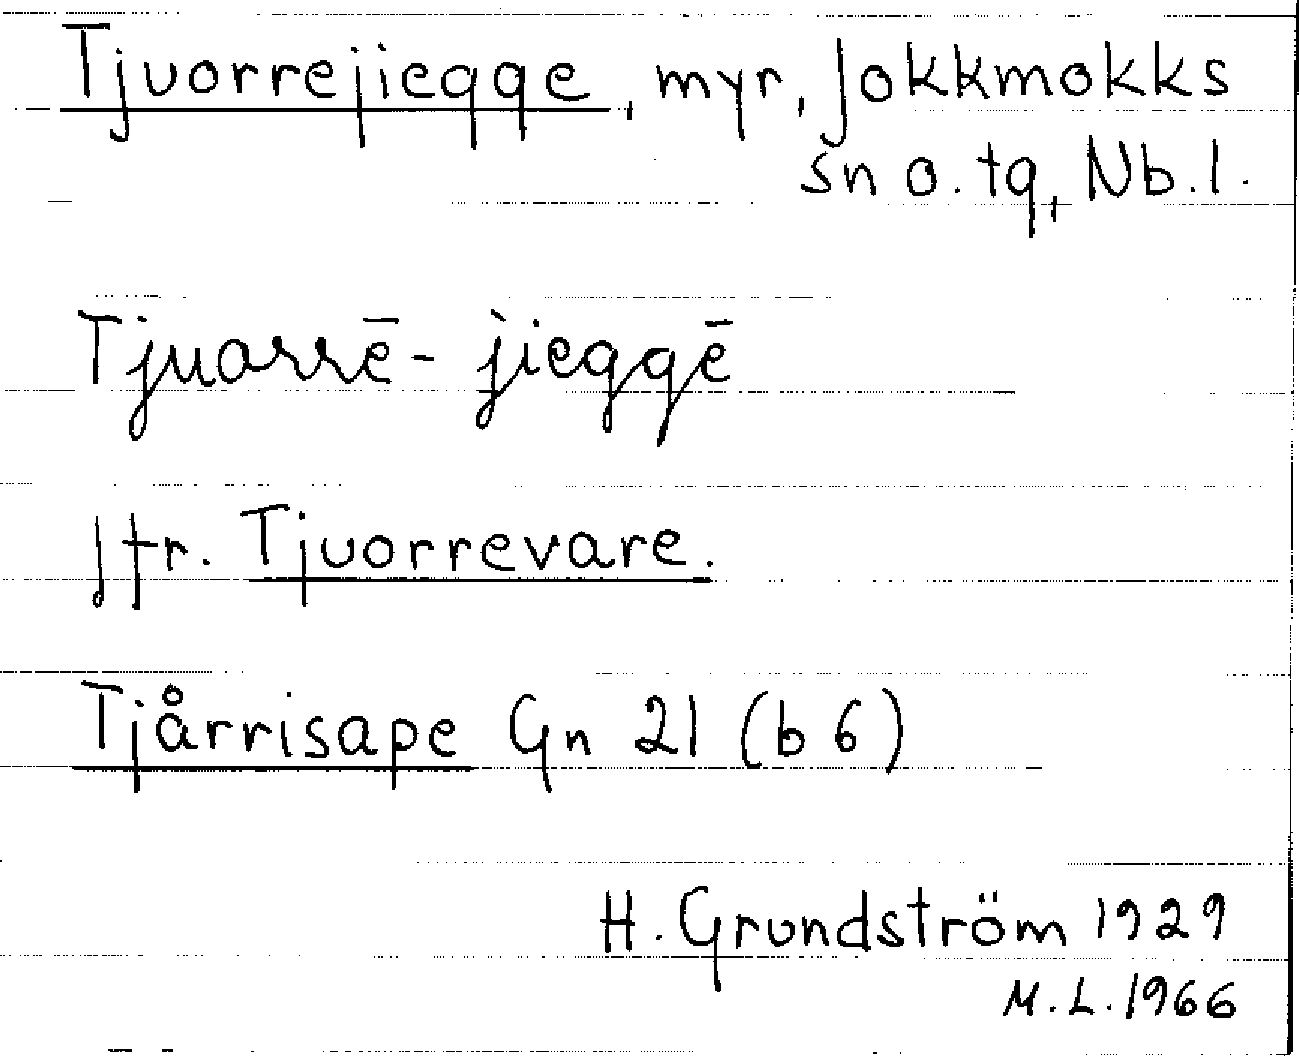 Tjuorrejiegge, myr, Jokkmokks
sn o. tg, Nb.l.
Tjuarrē-jieggē
Jfr. Tjuorrevare.
Tjårrisape Gn 21 (b 6)
H. Grundström 1929
M.L. 1966